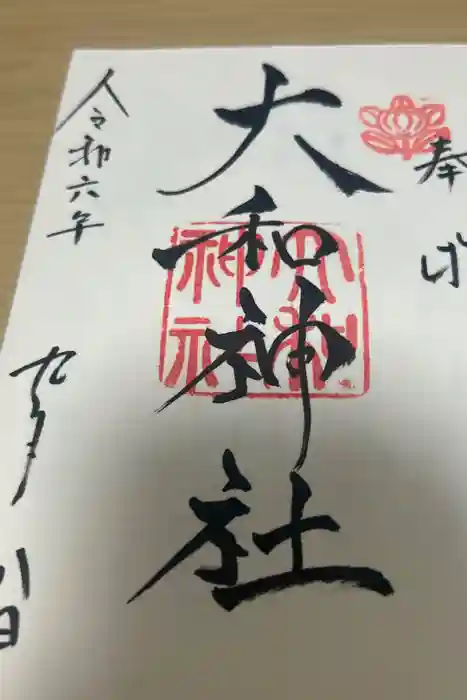 奉拝
大和神社
大和神社
令和六年
九月
八日